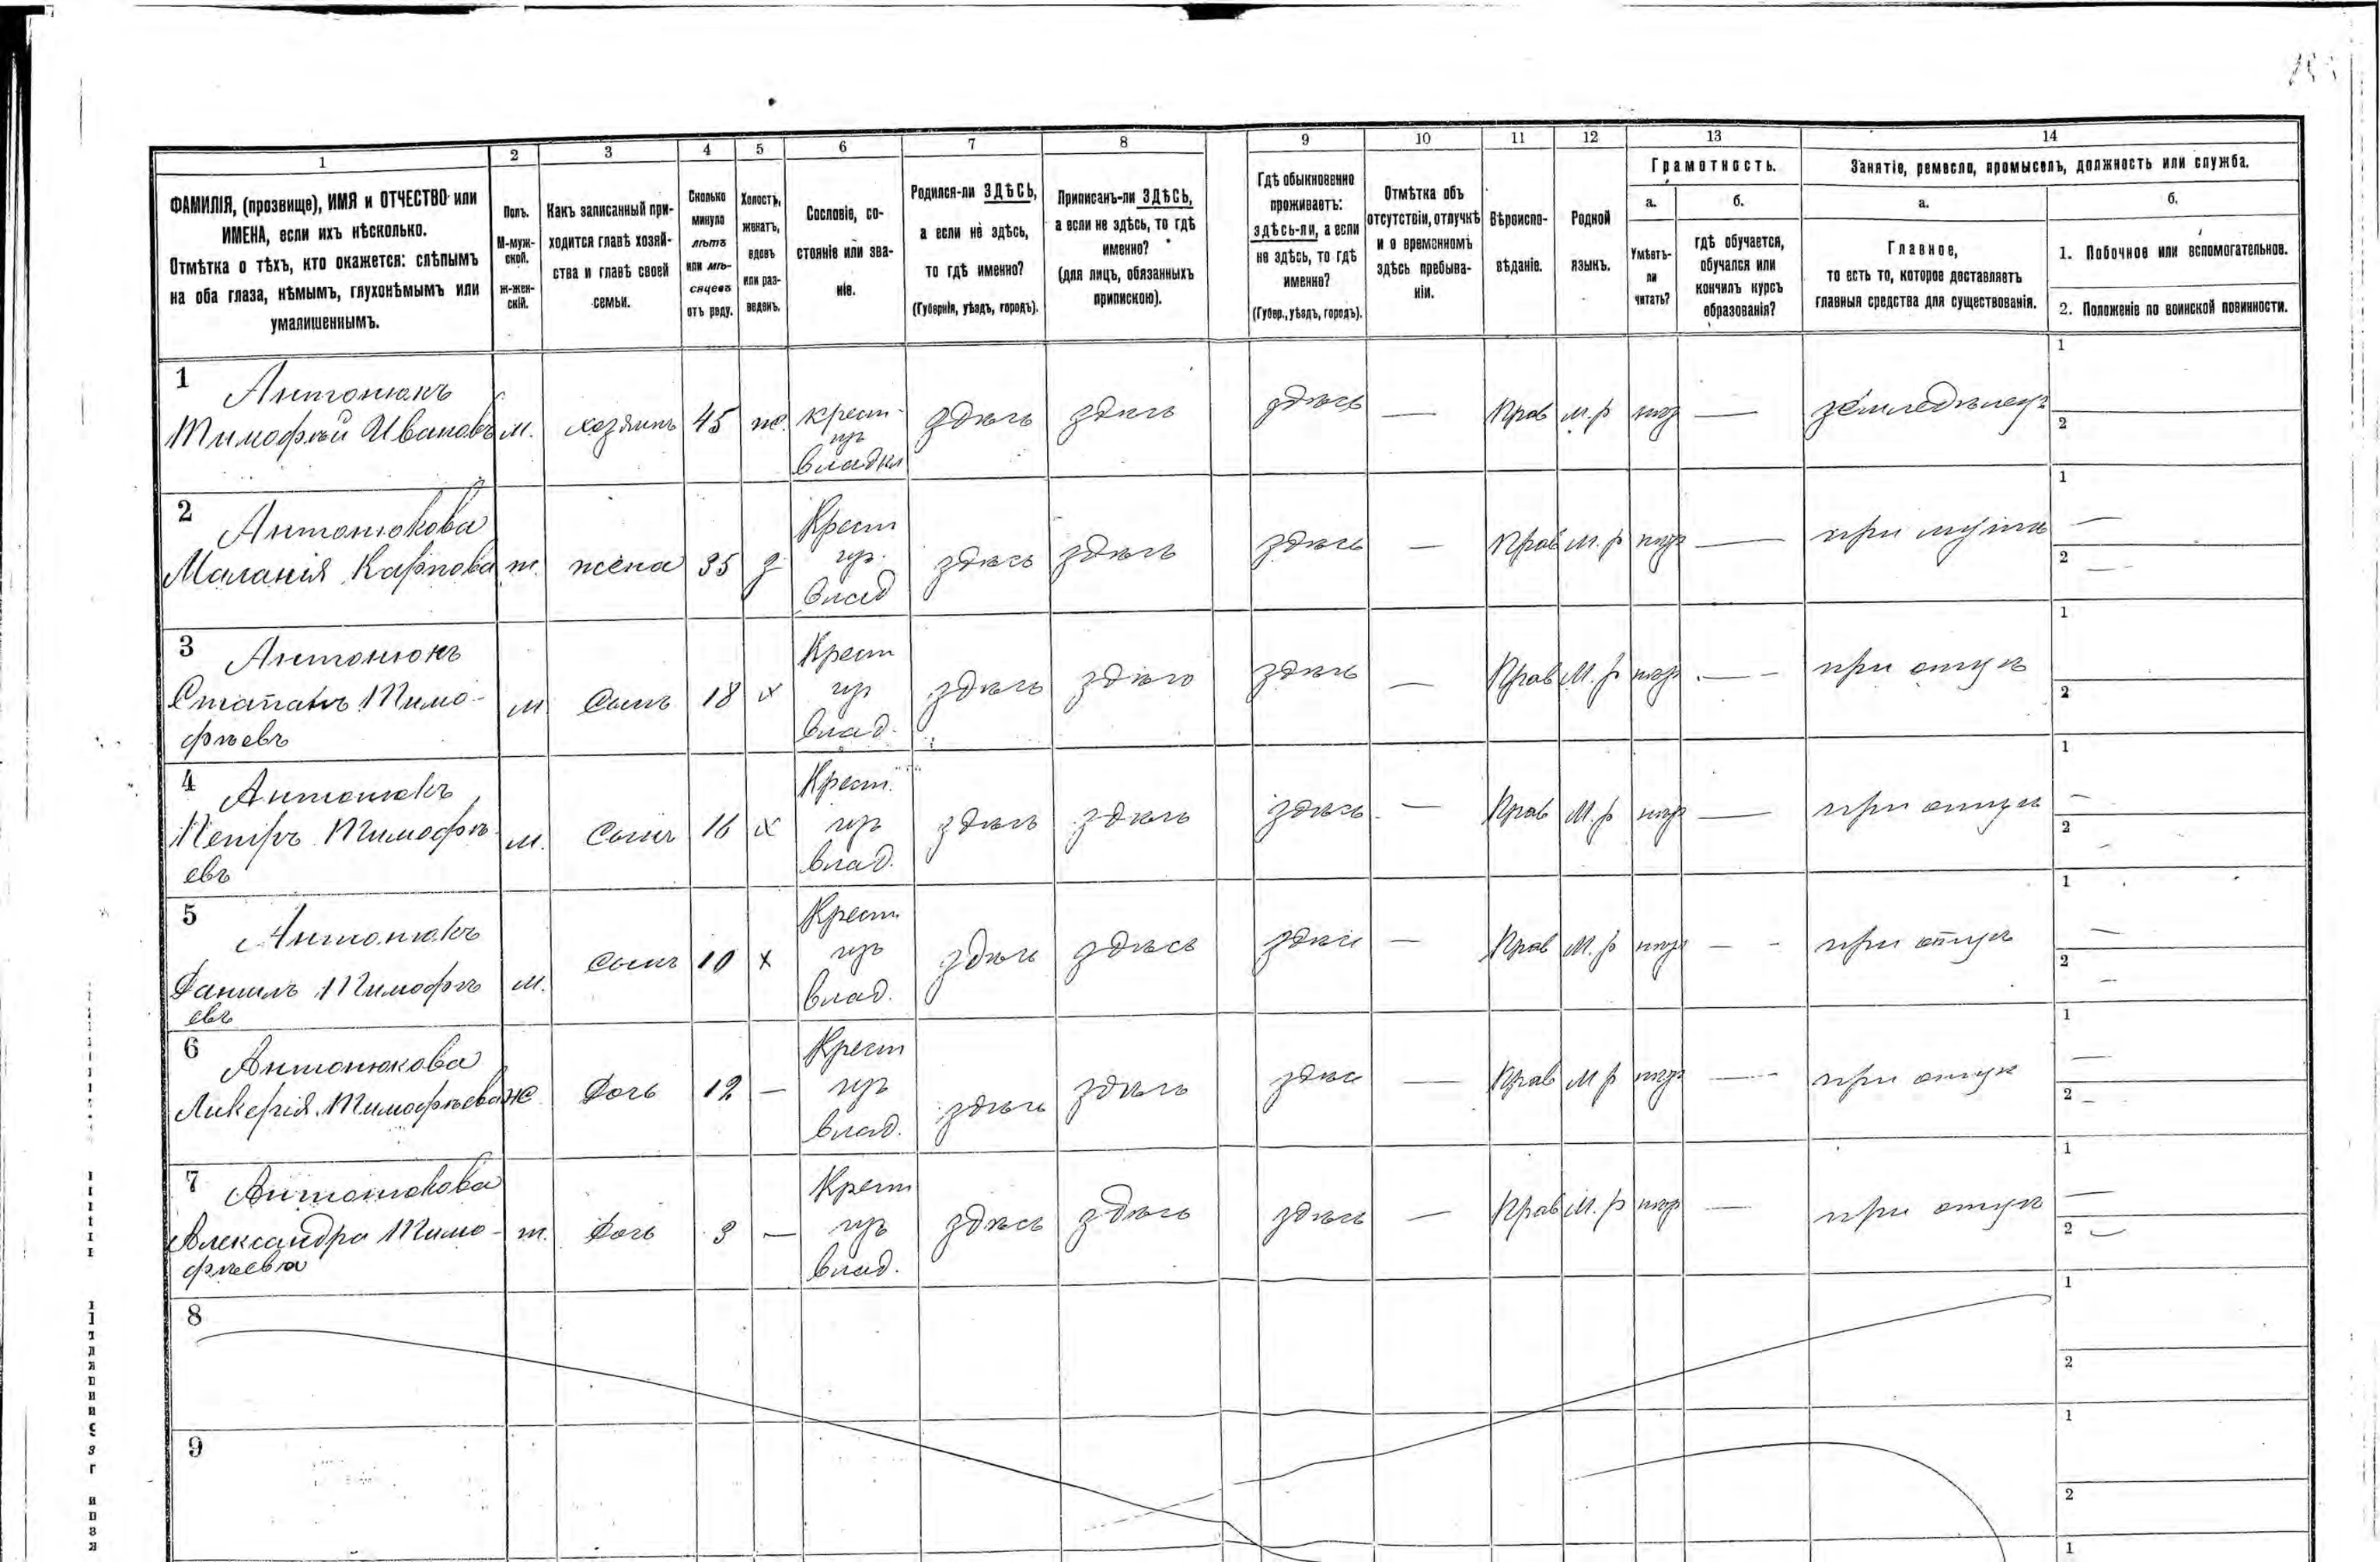 1
2
3
4
5
6
7
8
9
10
11
12
13
14
ФАМИЛІЯ, (прозвище), ИМЯ и ОТЧЕСТВО или
ИМЕНА, если ихъ нѣсколько.
Отмѣтка о тѣхъ, кто окажется: слѣпымъ
на оба глаза, нѣмымъ, глухонѣмымъ или
умалишеннымъ.
Полъ.
М-муж-
ской.
ж-жен-
скій.
Какъ записанный при-
ходится главѣ хозяй-
ства и главѣ своей
семьи.
Сколько
минуло
лѣтъ
или мѣ-
сяцевъ
отъ роду.
Холостъ,
женатъ,
вдовъ
или раз-
веденъ.
Сословіе, со-
стояніе или зва-
ніе.
Родился-ли ЗДѢСЬ,
а если не здѣсь,
то гдѣ именно?
(Губернія, уѣздъ, городъ).
Приписанъ-ли ЗДѢСЬ,
а если не здѣсь, то гдѣ
именно?
(для лицъ, обязанныхъ
припискою).
Гдѣ обыкновенно
проживаетъ:
здѣсь-ли, а если
не здѣсь, то гдѣ
именно?
(Губер., уѣздъ, городъ).
Отмѣтка объ
отсутствіи, отлучкѣ
и о временномъ
здѣсь пребыва-
ніи.
Вѣроиспо-
вѣданіе.
Родной
языкъ.
Грамотность.
а.
Умѣетъ-
ли
читать?
б.
гдѣ обучается,
обучался или
кончилъ курсъ
образованія?
Занятіе, ремесло, промыселъ, должность или служба.
а.
Главное,
то есть то, которое доставляетъ
главныя средства для существованія.
б.
1. Побочное или вспомогательное.
2. Положеніе по воинской повинности.
1 Антонюкъ
Тимофѣй Ивановъ м. хозяинъ 45 ж. крест здѣсь здѣсь здѣсь — Прав м.р — земледѣлецъ 1
владѣл 2
2 Антонюкова
Маланія Карпова ж. жена 35 з Крест здѣсь здѣсь здѣсь — Прав м.р — при мужѣ 1 —
влад 2 —
3 Антонюкъ
Степанъ Тимо-
фѣевъ м сынъ 18 х Крест здѣсь здѣсь здѣсь — Прав М.р — при отцѣ 1
влад. 2
4 Антонюкъ
Петръ Тимофѣ
евъ м. сынъ 16 х Крест. здѣсь здѣсь здѣсь — Прав М.р — при отцѣ 1 —
влад. 2 —
5 Антонюкъ
Данилъ Тимофѣ
евъ м. сынъ 10 х Крест здѣсь здѣсь здѣсь — Прав М.р — при отцѣ 1 —
влад. 2 —
6 Антонюкова
Ликерія Тимофѣева ж Дочь 12 — Крест здѣсь здѣсь здѣсь — Прав М р — при отцѣ 1 —
влад. 2 —
7 Антонюкова
Александра Тимо-
фѣевна ж. Дочь 3 — Крест здѣсь здѣсь здѣсь — Прав М.р — при отцѣ 1 —
влад. 2 —
8 1
2
9 1
2
1